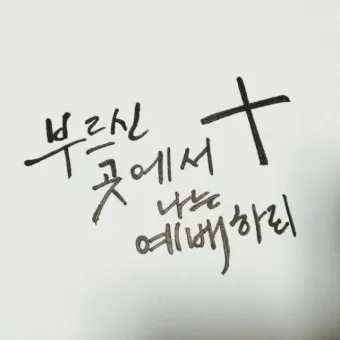 부르신
곳에서
나는
예배하리